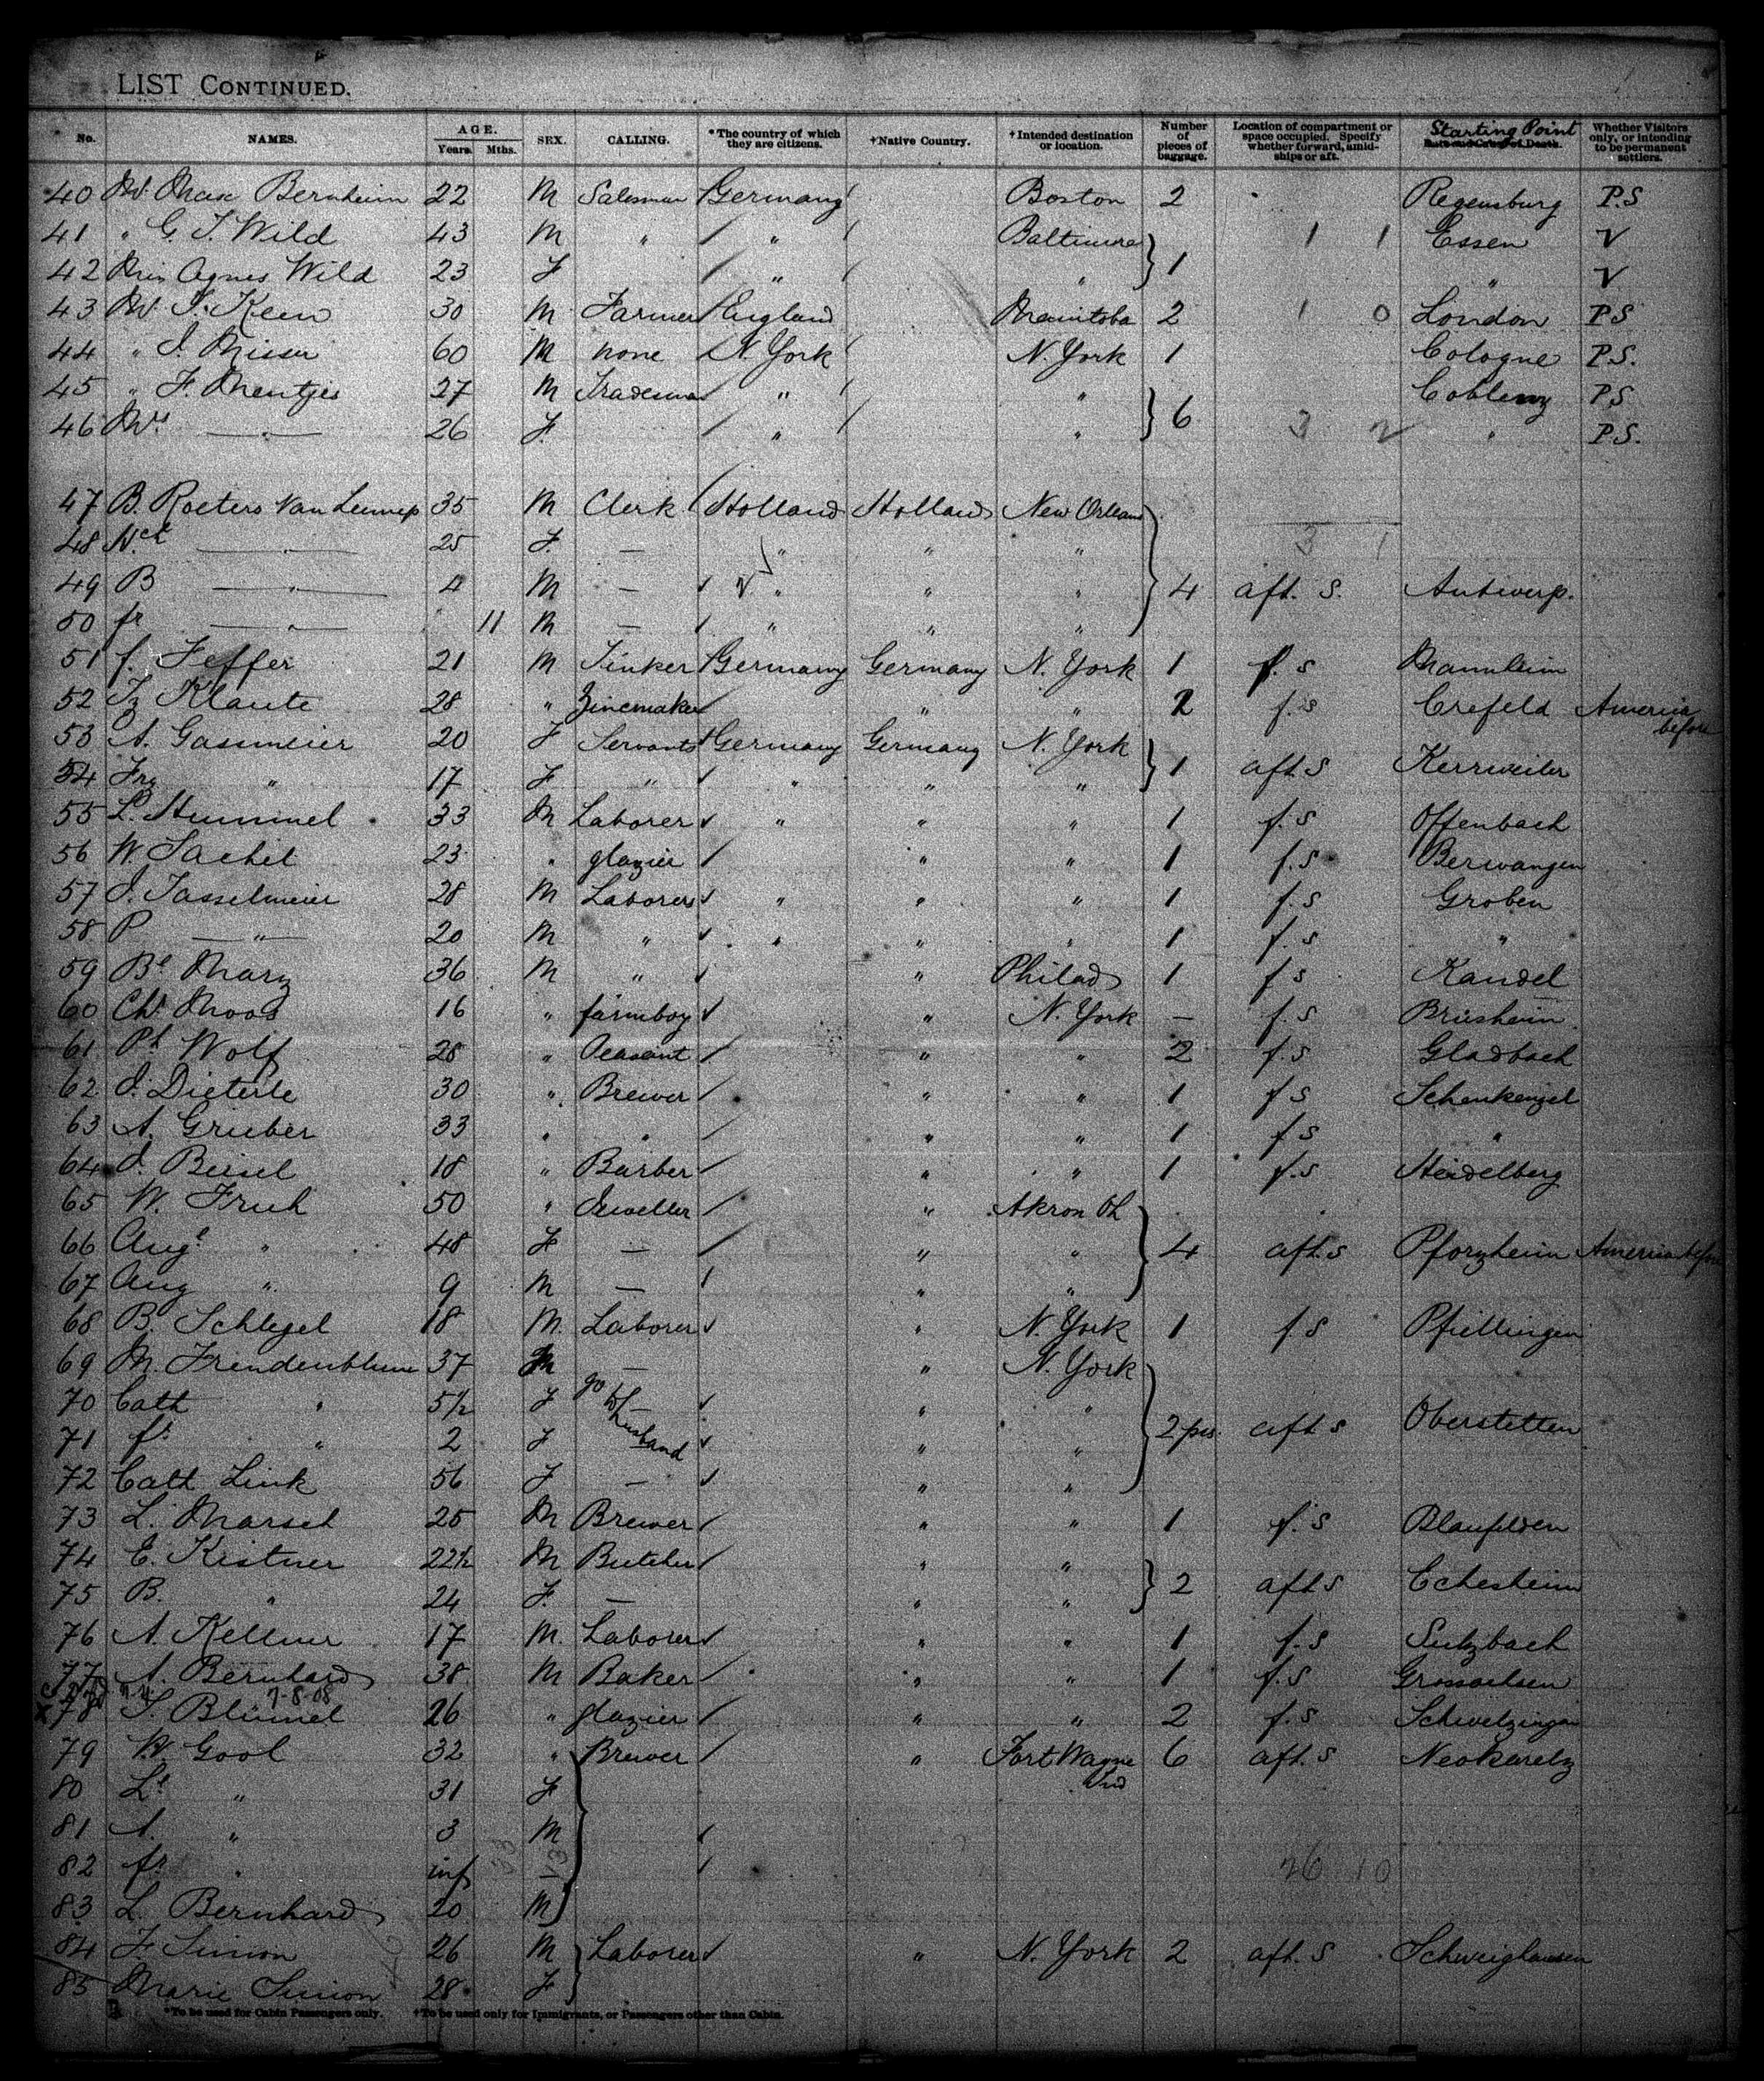 LIST CONTINUED.
No. NAMES. AGE. Years. Mths. SEX. CALLING. *The country of which they are citizens. †Native Country. †Intended destination or location. Number of pieces of baggage. Location of compartment or space occupied. Specify whether forward, amidships or aft. Starting Point Whether Visitors only, or intending to be permanent settlers.
40 Mr. Max Bernheim 22 M Salesman Germany Boston 2 Regensburg P.S
41 " G. J. Wild 43 M " " Baltimore 1 1 Essen V
42 Agnes Wild 23 F " " } 1 " V
43 Mr. J. Keen 30 M Farmer England Manitoba 2 1 0 London P.S
44 " J. Misser 60 M none N. York N. York 1 Cologne P.S.
45 " F. Mentjes 27 M Tradesman " " Coblenz P.S
46 Mrs — " — 26 F. " " } 6 3 2 " P.S.
47 B. Roeters Van Lennep 35 M Clerk Holland Holland New Orleans
48 — " — 25 F. — " " " 3 1
49 B — " — 4 M — " " " } 4 aft. S. Antwerp.
50 fr — " — 11 M — " " "
51 f. Feffer 21 M Tinker Germany Germany N. York 1 f. s Mannheim
52 Fz Klaute 28 " Zincmaker " " 2 f. s Crefeld America before
53 A. Gassmeier 20 F Servants Germany Germany N. York
54 Frz " 17 F " " " " } 1 aft S Kerrweiler
55 L. Hummel 33 M Laborer " " " 1 f. s Offenbach
56 W. Sachit 23 " glazier " " 1 f. s Berwangen
57 J. Tasselmeier 28 M Laborers " " " 1 f. s Groben
58 P — " — 20 M " " " " 1 f. s "
59 Bd Marz 36 M " " Philad 1 f s Kandel
60 Chr. Moos 16 " farmboy " N. York — f. s
61 Ph Wolf 28 " Peasant " " 2 f. s Gladbach
62 J. Dieterle 30 " Brewer " " 1 f s Schenkenzel
63 A. Gruber 33 " " " " 1 f s "
64 J. Beisel 18 " Barber " " 1 f. s Heidelberg
65 W. Fruh 50 " Jeweller " Akron Oh
66 Auge " 48 F — " " } 4 aft. s Pforzheim America before
67 Aug " 9 M — " "
68 B. Schlegel 18 M. Laborer " N. York 1 f. s
69 M. Frendenblum 37 M — " N. York
70 Cath " 5½ F go to husband — " "
71 fr " 2 F " " } 2 pcs. aft s Oberstetten
72 Cath Link 56 F — " "
73 L. Marsch 25 M Brewer " " 1 f. s Blaufelden
74 E. Kistner 22½ M Butcher " "
75 B. " 24 F. — " " } 2 aft s Echesheim
76 A. Kellner 17 M. Laborer " " 1 f. s Sulzbach
77 A. Bernhard 38 M Baker " " 1 f. s Grossachsen
7-8-08
78 J. Blümel 26 " glazier " " 2 f. s Schwetzingen
79 W. Gool 32 " Brewer " Fort Wayne Ind 6 aft. s
80 Le " 31 F
81 A. " 3 M
82 fr " inf 26 10
83 L. Bernhard 20 M
84 F Simon 26 M Laborer " N. York 2 aft. S Schweighausen
85 Marie Simon 28 F
*To be used for Cabin Passengers only. †To be used only for Immigrants, or Passengers other than Cabin.